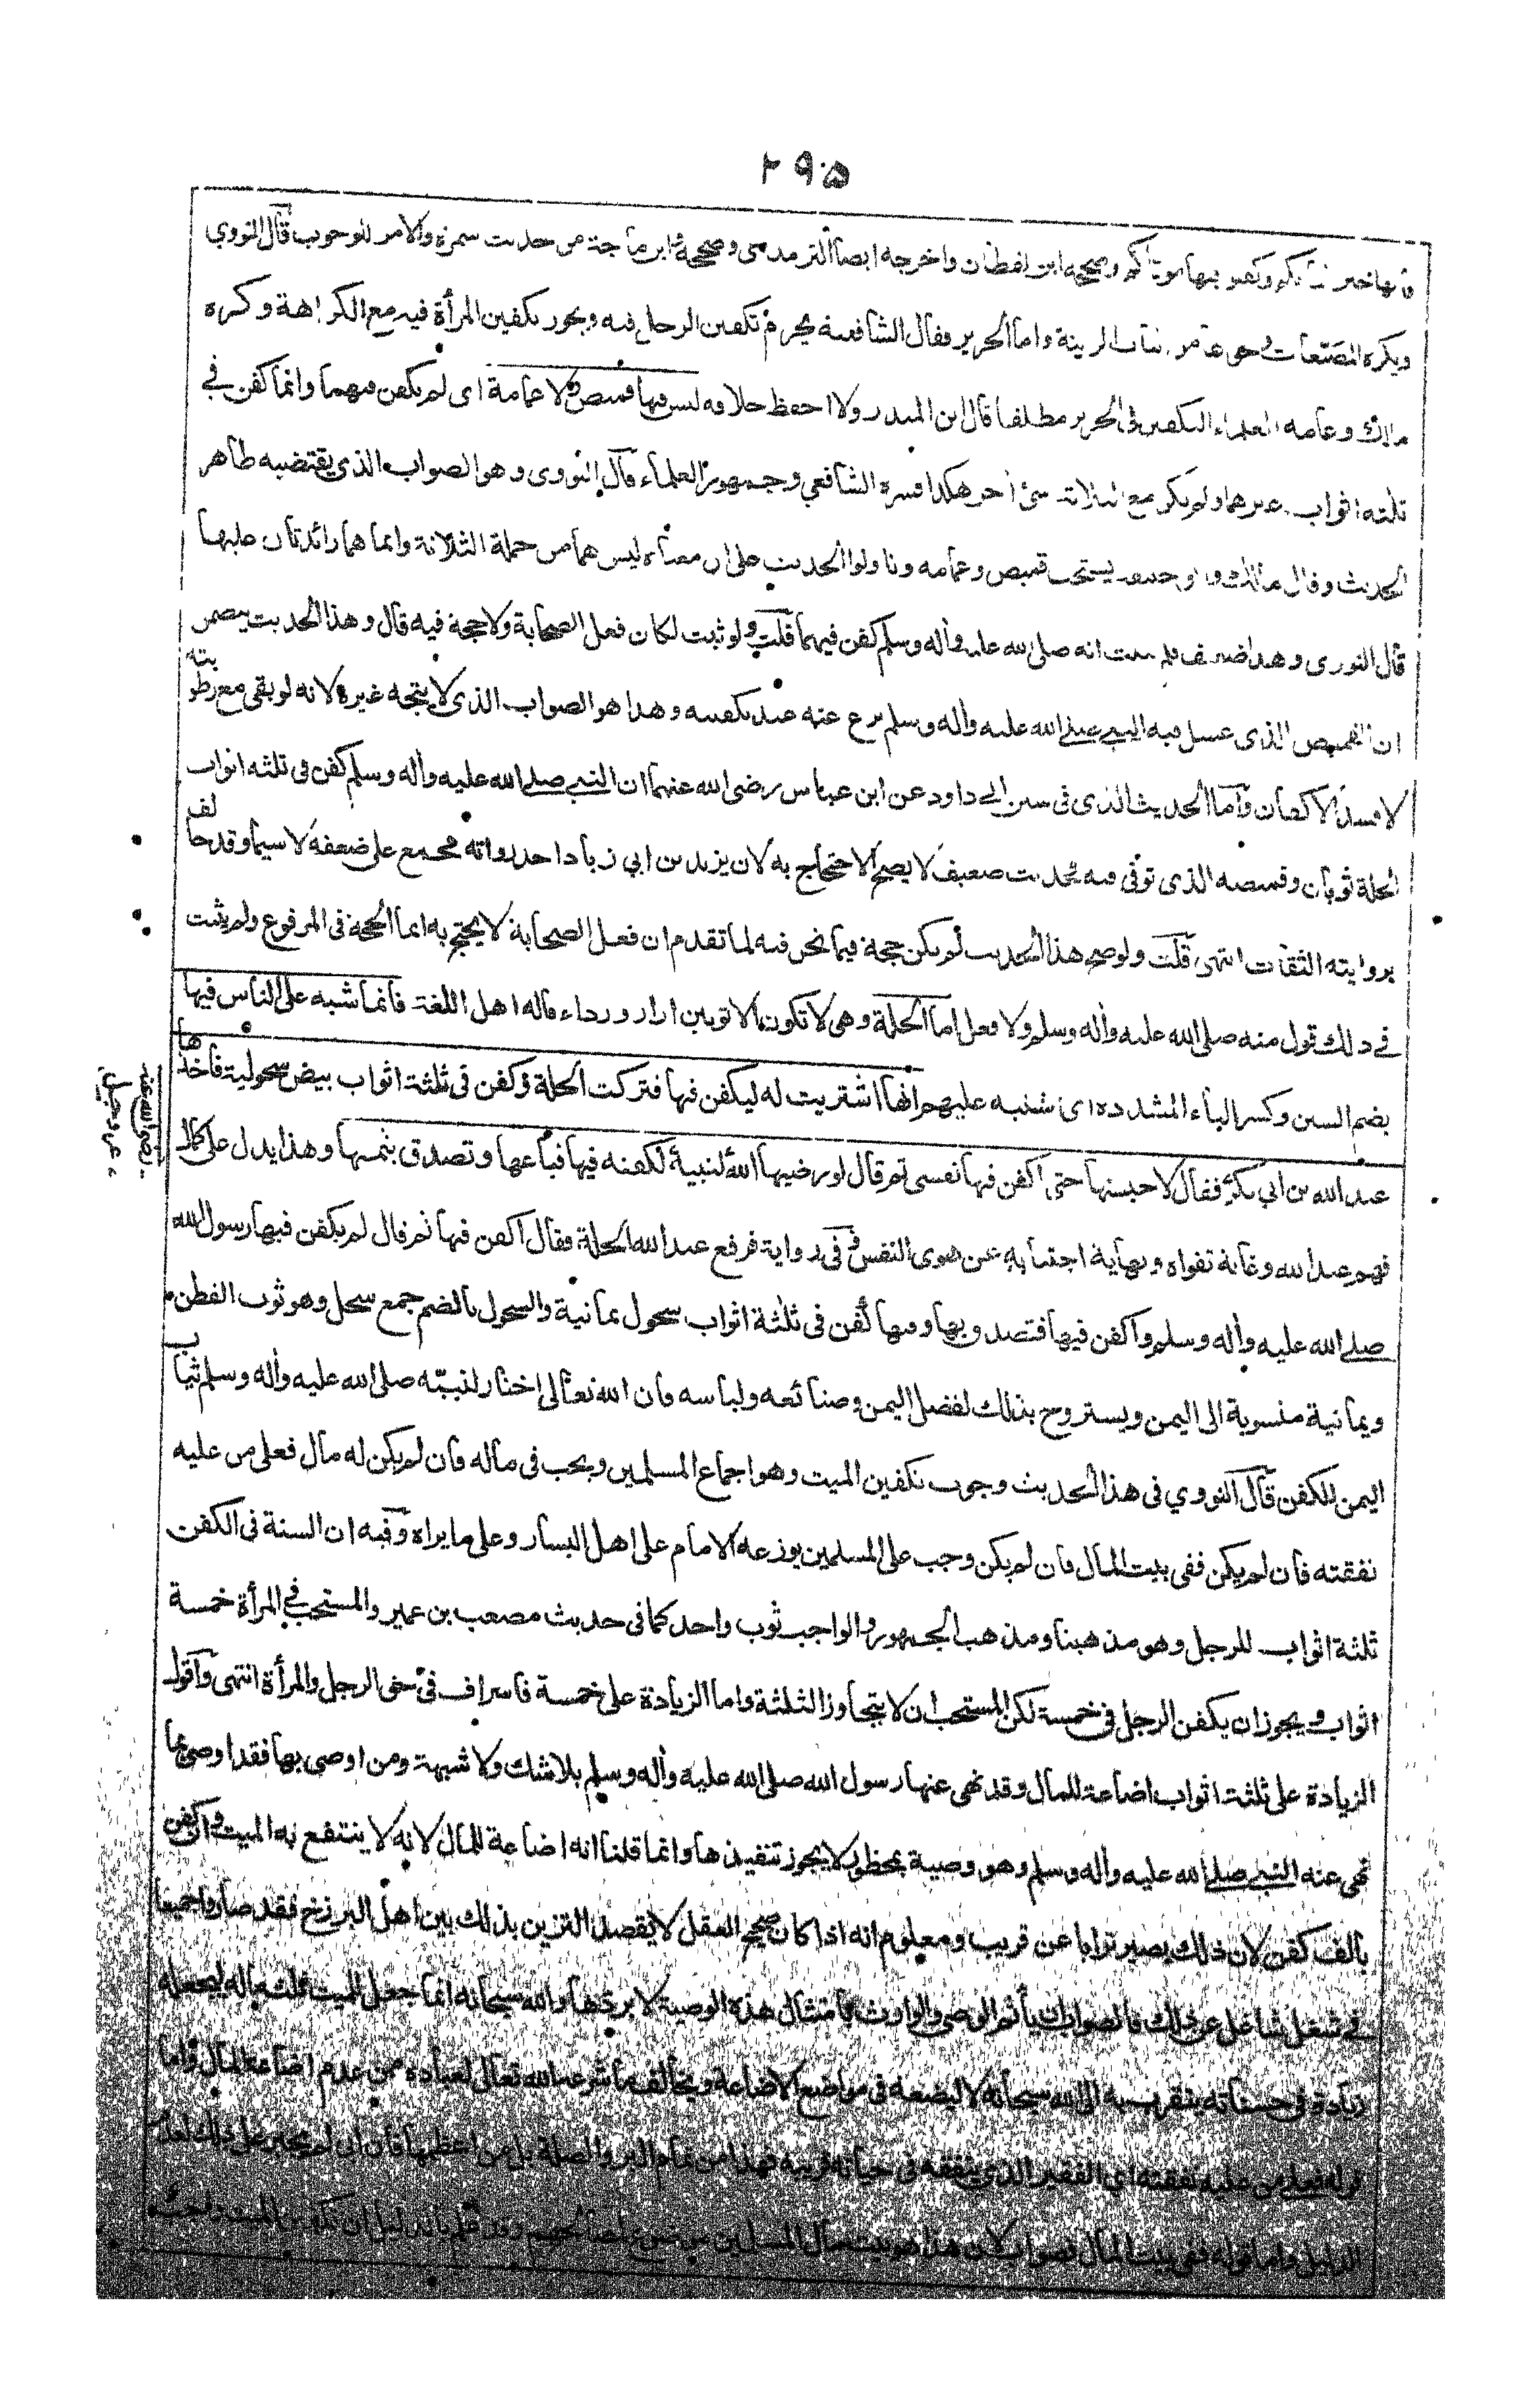 ٢٩٥
خير ثيابكم وكفنوا فيها موتاكم وصححه ابن القطان واخرجه ايضا الترمذي وصححه وابن ماجة من حديث سمرة والامر للوجوب قال النووي
ويكره المصبغات ونحوها من ثياب الزينة واما الحرير فقال الشافعية يحرم تكفين الرجل فيه ويجوز تكفين المرأة فيه مع الكراهة وكره
مالك وعامة العلماء التكفين في الحرير مطلقا قال ابن المنذر ولا احفظ خلافه ليس فيها قميص ولا عمامة اى لم يكفن فيهما وانما كفن في
ثلثة اثواب غيرهما ولم يكن مع الثلاثة شئ آخر هكذا فسره الشافعي وجمهور العلماء قال النووى وهو الصواب الذى يقتضيه ظاهر
الحديث وقال مالك وابو حنيفة يستحب قميص وعمامه وتاولوا الحديث على ان معناه ليس هما من جملة الثلاثة وانما هما زائدتان عليها
قال النووى وهذا ضعيف فلم يثبت انه صلى الله عليه وأله وسلم كفن فيهما قلت ولو ثبت لكان فعل الصحابة ولا حجة فيه قال وهذا الحديث يتضمن
ان القميص الذى غسل فيه النبي صلى الله عليه وأله وسلم نزع عنه عند تكفينه وهذا هو الصواب الذى لا يتجه غيره لانه لو بقى مع رطوبته
لا فسد الاكفان واما الحديث الذى فى سنن ابي داود عن ابن عباس رضى الله عنهما ان النبي صلى الله عليه وأله وسلم كفن فى ثلثه اثواب
الحلة ثوبان وقميصه الذى توفى فيه فحديث ضعيف لا يصح الاحتجاج به لان يزيد بن ابي زياد احد رواته مجمع على ضعفه لا سيما وقد خالف
بروايته الثقات انتهى قلت ولو صح هذا الحديث لم يكن حجة فيما نحن فيه لما تقدم ان فعل الصحابة لا يحتج به انما الحجة فى المرفوع ولم يثبت
في ذلك قول منه صلى الله عليه وأله وسلم ولا فعل اما الحلة وهى لا تكون الا ثوبين ازار ورداء قاله اهل اللغة فانما شبه على الناس فيها
بضم السين وكسر الباء المشدده اى اشتبه عليهم انها اشتريت له ليكفن فيها فتركت الحلة وكفن فى ثلثة اثواب بيض سحولية فاخذها
عبد الله بن ابي بكر فقال لاحبسنها حتى اكفن فيها نفسى ثم قال لو رضيها الله لنبيه لكفنه فيها فباعها وتصدق بثمنها وهذا يدل على كمال
فهم عبد الله وغاية تقواه ونهاية اجتنابه عن هوى النفس وفى رواية فرفع عبد الله الحلة فقال اكفن فيها ثم قال لم يكفن فيها رسول الله
صلى الله عليه وأله وسلم واكفن فيها فتصدق بها ومنها كفن فى ثلثة اثواب سحول يمانية والسحول بالضم جمع سحل وهو ثوب القطن
ويمانية منسوبة الى اليمن ويستروح بذلك لفضل اليمن وصنائعه ولباسه فان الله تعالى اختار لنبيه صلى الله عليه وأله وسلم ثياب
اليمن للكفن قال النووي فى هذا الحديث وجوب تكفين الميت وهو اجماع المسلمين ويجب فى ماله فان لم يكن له مال فعلى من عليه
نفقته فان لم يكن ففى بيت المال فان لم يكن وجب على المسلمين يوزعه الامام على اهل اليسار وعلى ما يراه وفيه ان السنة فى الكفن
ثلثة اثواب للرجل وهو مذهبنا ومذهب الجمهور والواجب ثوب واحد كما فى حديث مصعب بن عمير والمستحب في المرأة خمسة
اثواب ويجوز ان يكفن الرجل فى خمسة لكن المستحب ان لا يتجاوز الثلثة واما الزيادة على خمسة فاسراف فى حق الرجل والمرأة انتهى واقول
الزيادة على ثلثة اثواب اضاعة للمال وقد نهى عنها رسول الله صلى الله عليه وأله وسلم بلا شك ولا شبهة ومن اوصى بها فقد اوصى بما
نهى عنه النبي صلى الله عليه وأله وسلم وهو وصية بمحظور لا يجوز تنفيذها وانما قلنا انه اضاعة للمال لانه لا ينتفع به الميت ولو كفن
بالف كفن لان ذلك يصير ترابا عن قريب ومعلوم انه اذا كان صحيح العقل لا يقصد التزين بذلك بين اهل البرزخ فقد صاروا جميعا
في شغل شاغل عن ذلك فالصواب ان يأثم الوصي والوارث بامتثال هذه الوصية لا بردها والله سبحانه انما جعل للميت ثلث ماله ليجعله
زيادة فى حسناته يتقرب به الى الله سبحانه لا ليضعه فى مواضع الاضاعة ويخالف ما شرعه الله تعالى لعباده من عدم اضاعة المال واما
قوله فعلى من عليه نفقته اى الفقير الذى ينفقه فى حياته قريبه فهذا من تمام البر والصلة بل من اعظمها فان ابى لم يجبر على ذلك لعدم
الدليل واما قوله ففى بيت المال فصواب لان هذا هو بيت مال المسلمين